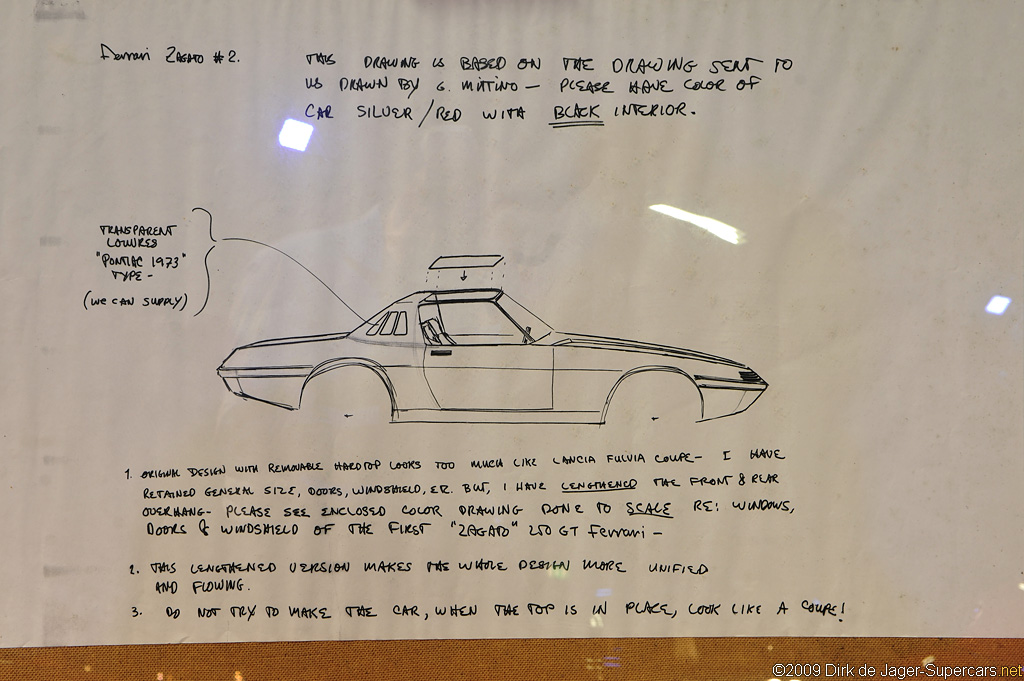 Ferrari ZAGATO #2.
THIS DRAWING IS BASED ON THE DRAWING SENT TO
US DRAWN BY G. MITTINO – PLEASE HAVE COLOR OF
CAR SILVER/RED WITH BLACK INTERIOR.
TRANSPARENT
LOUVRES
"PONTIAC 1973"
TYPE –
(WE CAN SUPPLY)
1. ORIGINAL DESIGN WITH REMOVABLE HARDTOP LOOKS TOO MUCH LIKE LANCIA FULVIA COUPE – I HAVE
RETAINED GENERAL SIZE, DOORS, WINDSHIELD, ETC. BUT, I HAVE LENGTHENED THE FRONT & REAR
OVERHANG – PLEASE SEE ENCLOSED COLOR DRAWING DONE TO SCALE RE: WINDOWS,
DOORS & WINDSHIELD OF THE FIRST "ZAGATO" 250 GT Ferrari –
2. THIS LENGTHENED VERSION MAKES THE WHOLE DESIGN MORE UNIFIED
AND FLOWING.
3. DO NOT TRY TO MAKE THE CAR, WHEN THE TOP IS IN PLACE, LOOK LIKE A COUPE!
©2009 Dirk de Jager-Supercars.net